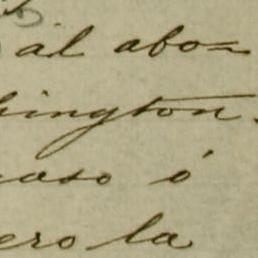 al abo=
hington.
aso ó
ero la